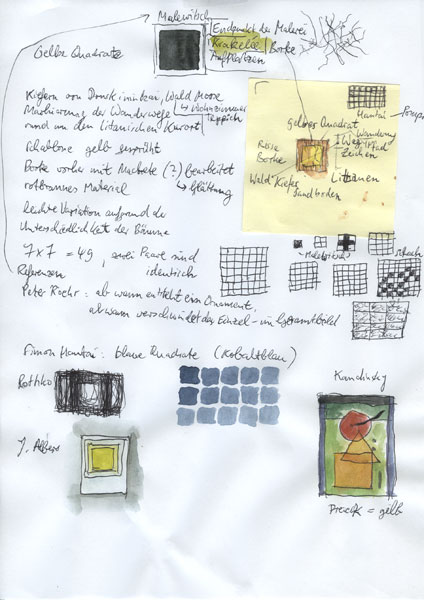 Malewitsch
Endpunkt der Malerei
Krakelee Borke
Aufplatzen
Gelbe Quadrate
Kiefern von Druskininkai, Wald Moose
Markierung der Wanderwege
Wohnzimmer
teppich
rund um den Litauischen Kurort
Schablone gelb gesprüht
Borke vorher mit Machete (?) bearbeitet
rotbraunes Material
Glättung
leichte Variation aufgrund der
Unterschiedlichkeit der Bäume
7x7 = 49, zwei Paare sind
identisch
Hantai
gelbes Quadrat
Wanderung
Weg
Pfad
Zeichen
Borke
Litauen
Wald Kiefer
Sandboden
Malewitsch
Schach
Referenzen
Peter Roehr: ab wann entsteht ein Ornament,
ab wann verschwindet das Einzel- im Gesamtbild
Simon Hantai: blaue Quadrate (Kobaltblau)
Rothko
Kandinsky
J. Albers
Dreieck = gelb